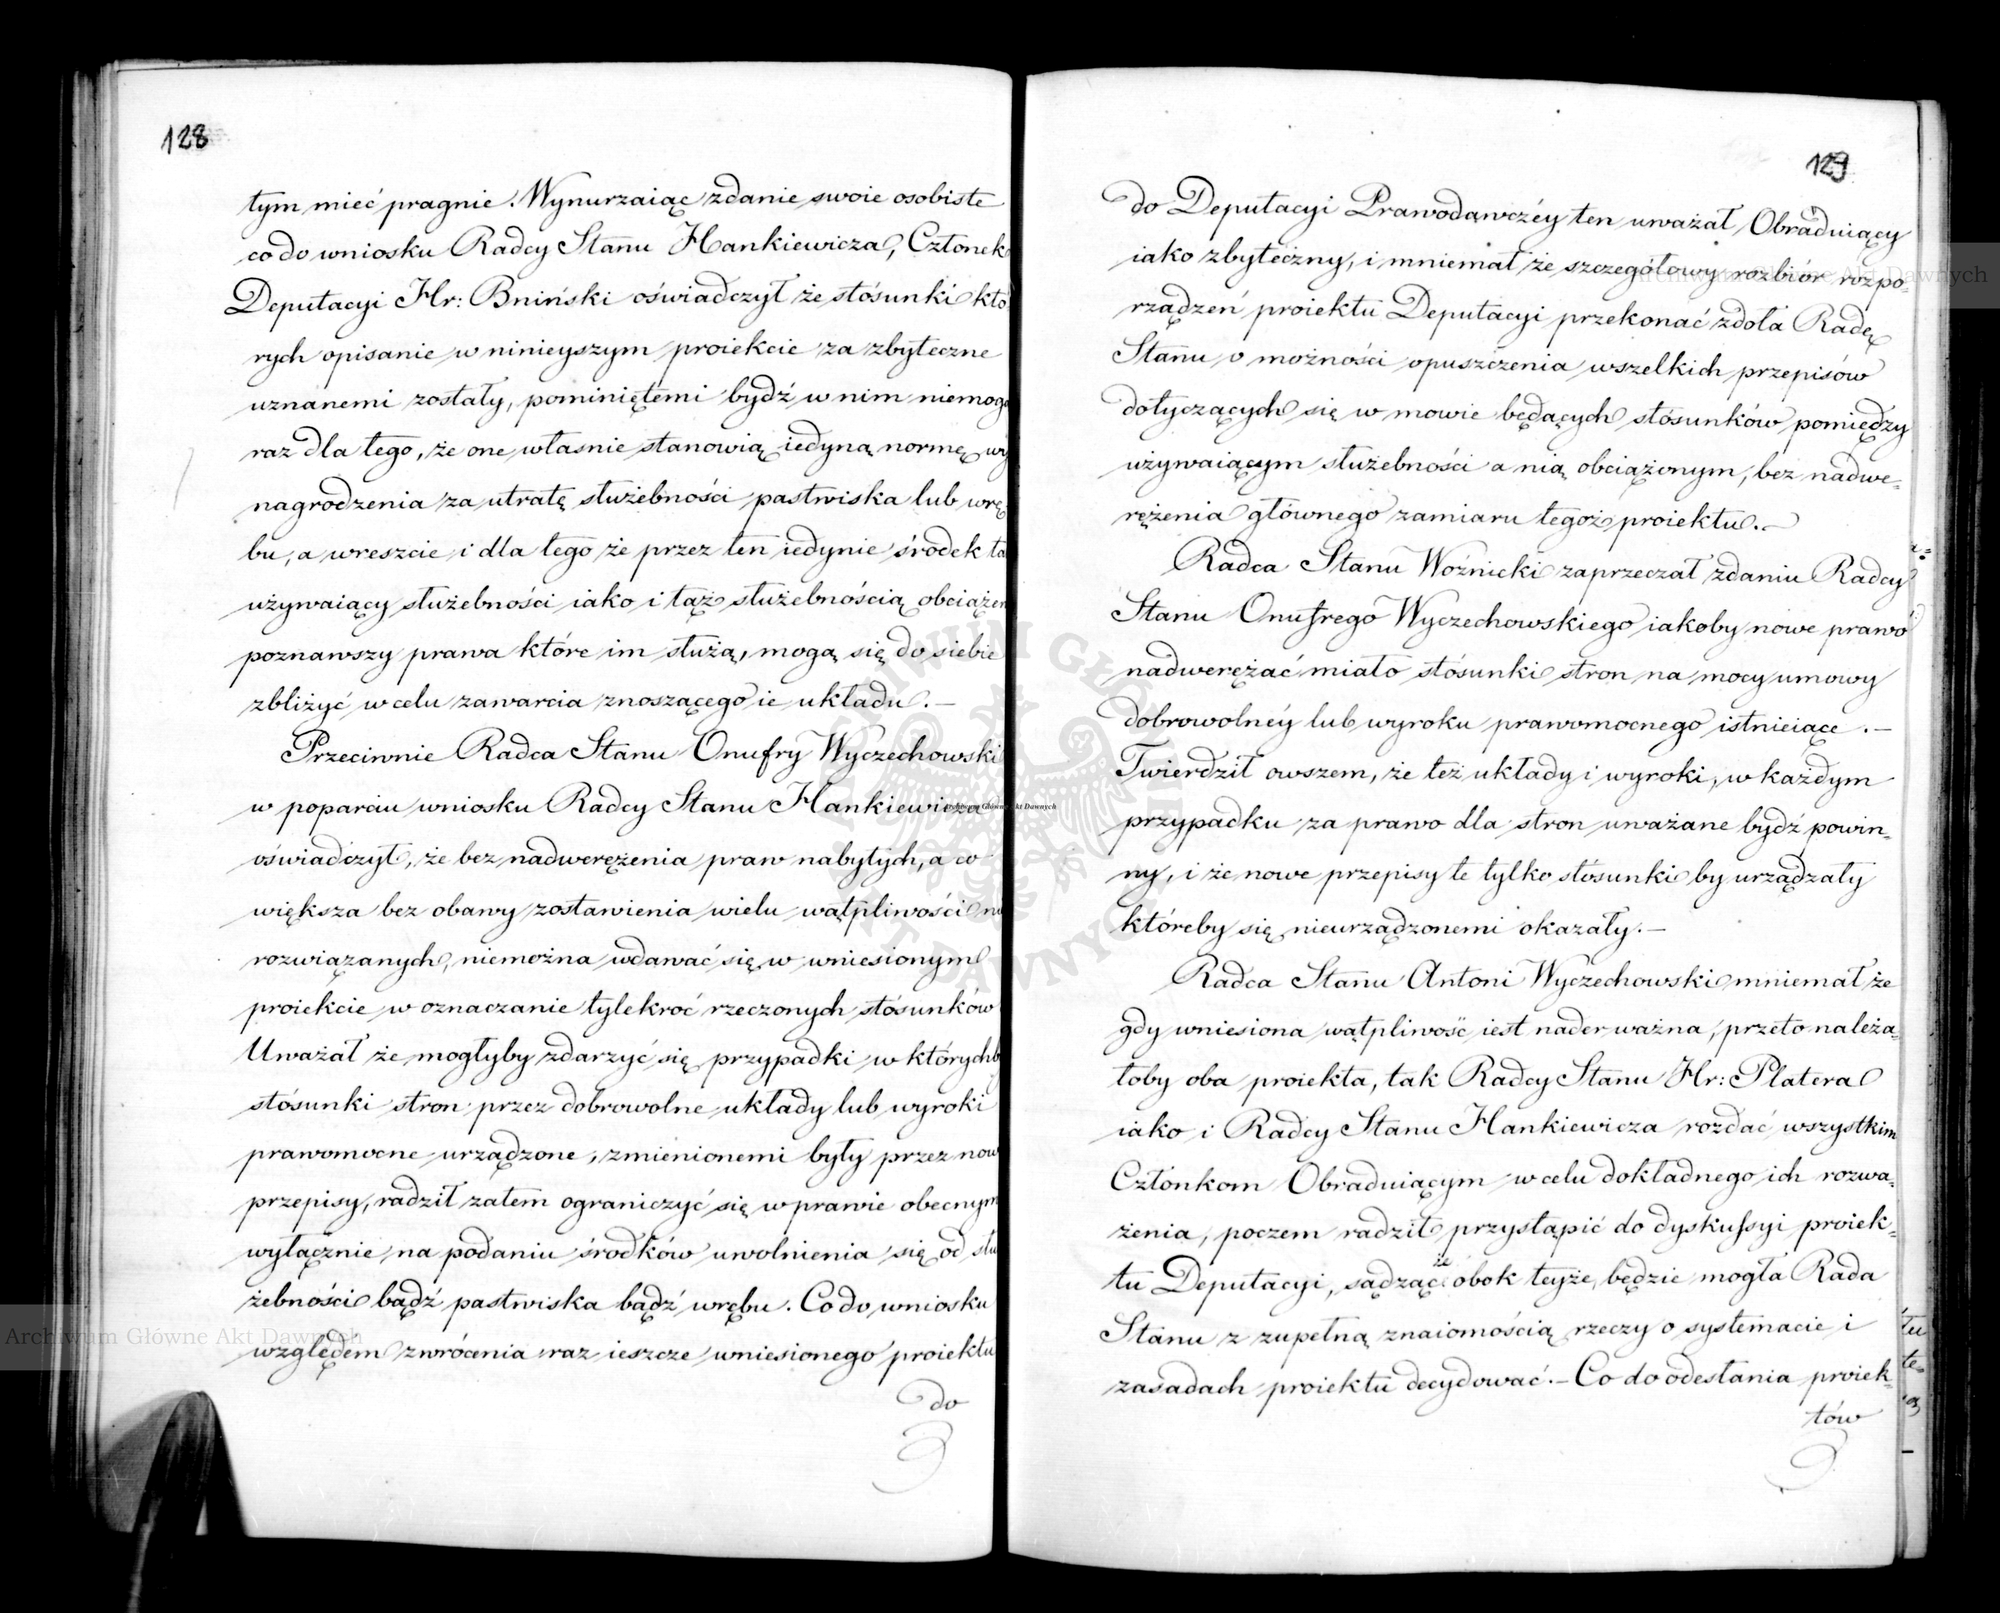 128
tym mieć pragnie. Wynurzaiąc zdanie swoie osobiste
co do wniosku Radcy Stanu Hankiewicza, Członek
Deputacyi Hr: Bniński oświadczył że stósunki któ
rych opisanie w ninieyszym proiekcie za zbyteczne
uznanemi zostały, pominiętemi bydź w nim niemogą
raz dla tego, że one własnie stanowią iedyną normę wy
nagrodzenia za utratę służebności pastwiska lub wrę
bu, a wreszcie i dla tego że przez ten iedynie środek ta
używaiący służebności iako i tąż służebnością obciążen
poznawszy prawa które im służą, mogą się do siebie
zbliżyć w celu zawarcia znoszącego ie układu. —
Przeciwnie Radca Stanu Onufry Wyczechowski
w poparciu wniosku Radcy Stanu Hankiewicza
oświadczył, że bez nadwerężenia praw nabytych, a co
większa bez obawy zostawienia wielu wątpliwości
rozwiązanych, niemożna wdawać się w wniesionym
proiekcie w oznaczanie tylekroć rzeczonych stósunków
Uważał że mogłyby zdarzyć się przypadki w którychb
stósunki stron przez dobrowolne układy lub wyroki
prawomocne urządzone, zmienionemi były przez now
przepisy, radził zatem ograniczyć się w prawie obecnym
wyłącznie na podaniu środków uwolnienia się od słu
żebności bądź pastwiska bądź wrębu. Co do wniosku
względem zwrócenia raz ieszcze wniesionego proiektu
do
129
do Deputacyi Prawodawczéy ten uważał Obraduiący
iako zbyteczny, i mniemał że szczegółowy rozbiór rozpo-
rządzeń proiektu Deputacyi przekonać zdoła Radę
Stanu o możności opuszczenia wszelkich przepisów
dotyczących się w mowie będących stósunków pomiędzy
używaiącym służebności a nią obciążonym, bez nadwe-
rężenia głównego zamiaru tegoż proiektu. —
Radca Stanu Woźnicki zaprzeczał zdaniu Radcy
Stanu Onufrego Wyczechowskiego iakoby nowe prawo
nadwerężać miało stósunki stron na mocy umowy
dobrowolnéy lub wyroku prawomocnego istnieiące. —
Twierdził owszem, że też układy i wyroki, w każdym
przypadku za prawo dla stron uważane bydź powin-
ny, i że nowe przepisy te tylko stosunki by urządzały
któreby się nieurządzonemi okazały. —
Radca Stanu Antoni Wyczechowski mniemał że
gdy wniesiona wątpliwość iest nader ważna, przeto należa-
łoby oba proiekta, tak Radcy Stanu Hr: Platera
iako i Radcy Stanu Hankiewicza rozdać wszystkim
Członkom Obraduiącym w celu dokładnego ich rozwa-
żenia, poczem radził przystąpić do dyskussyi proiek-
tu Deputacyi, sądząc że obok teyże, będzie mogła Rada
Stanu z zupełną znaiomością rzeczy o systemacie i
zasadach proiektu decydować. — Co do odesłania proiek-
tów